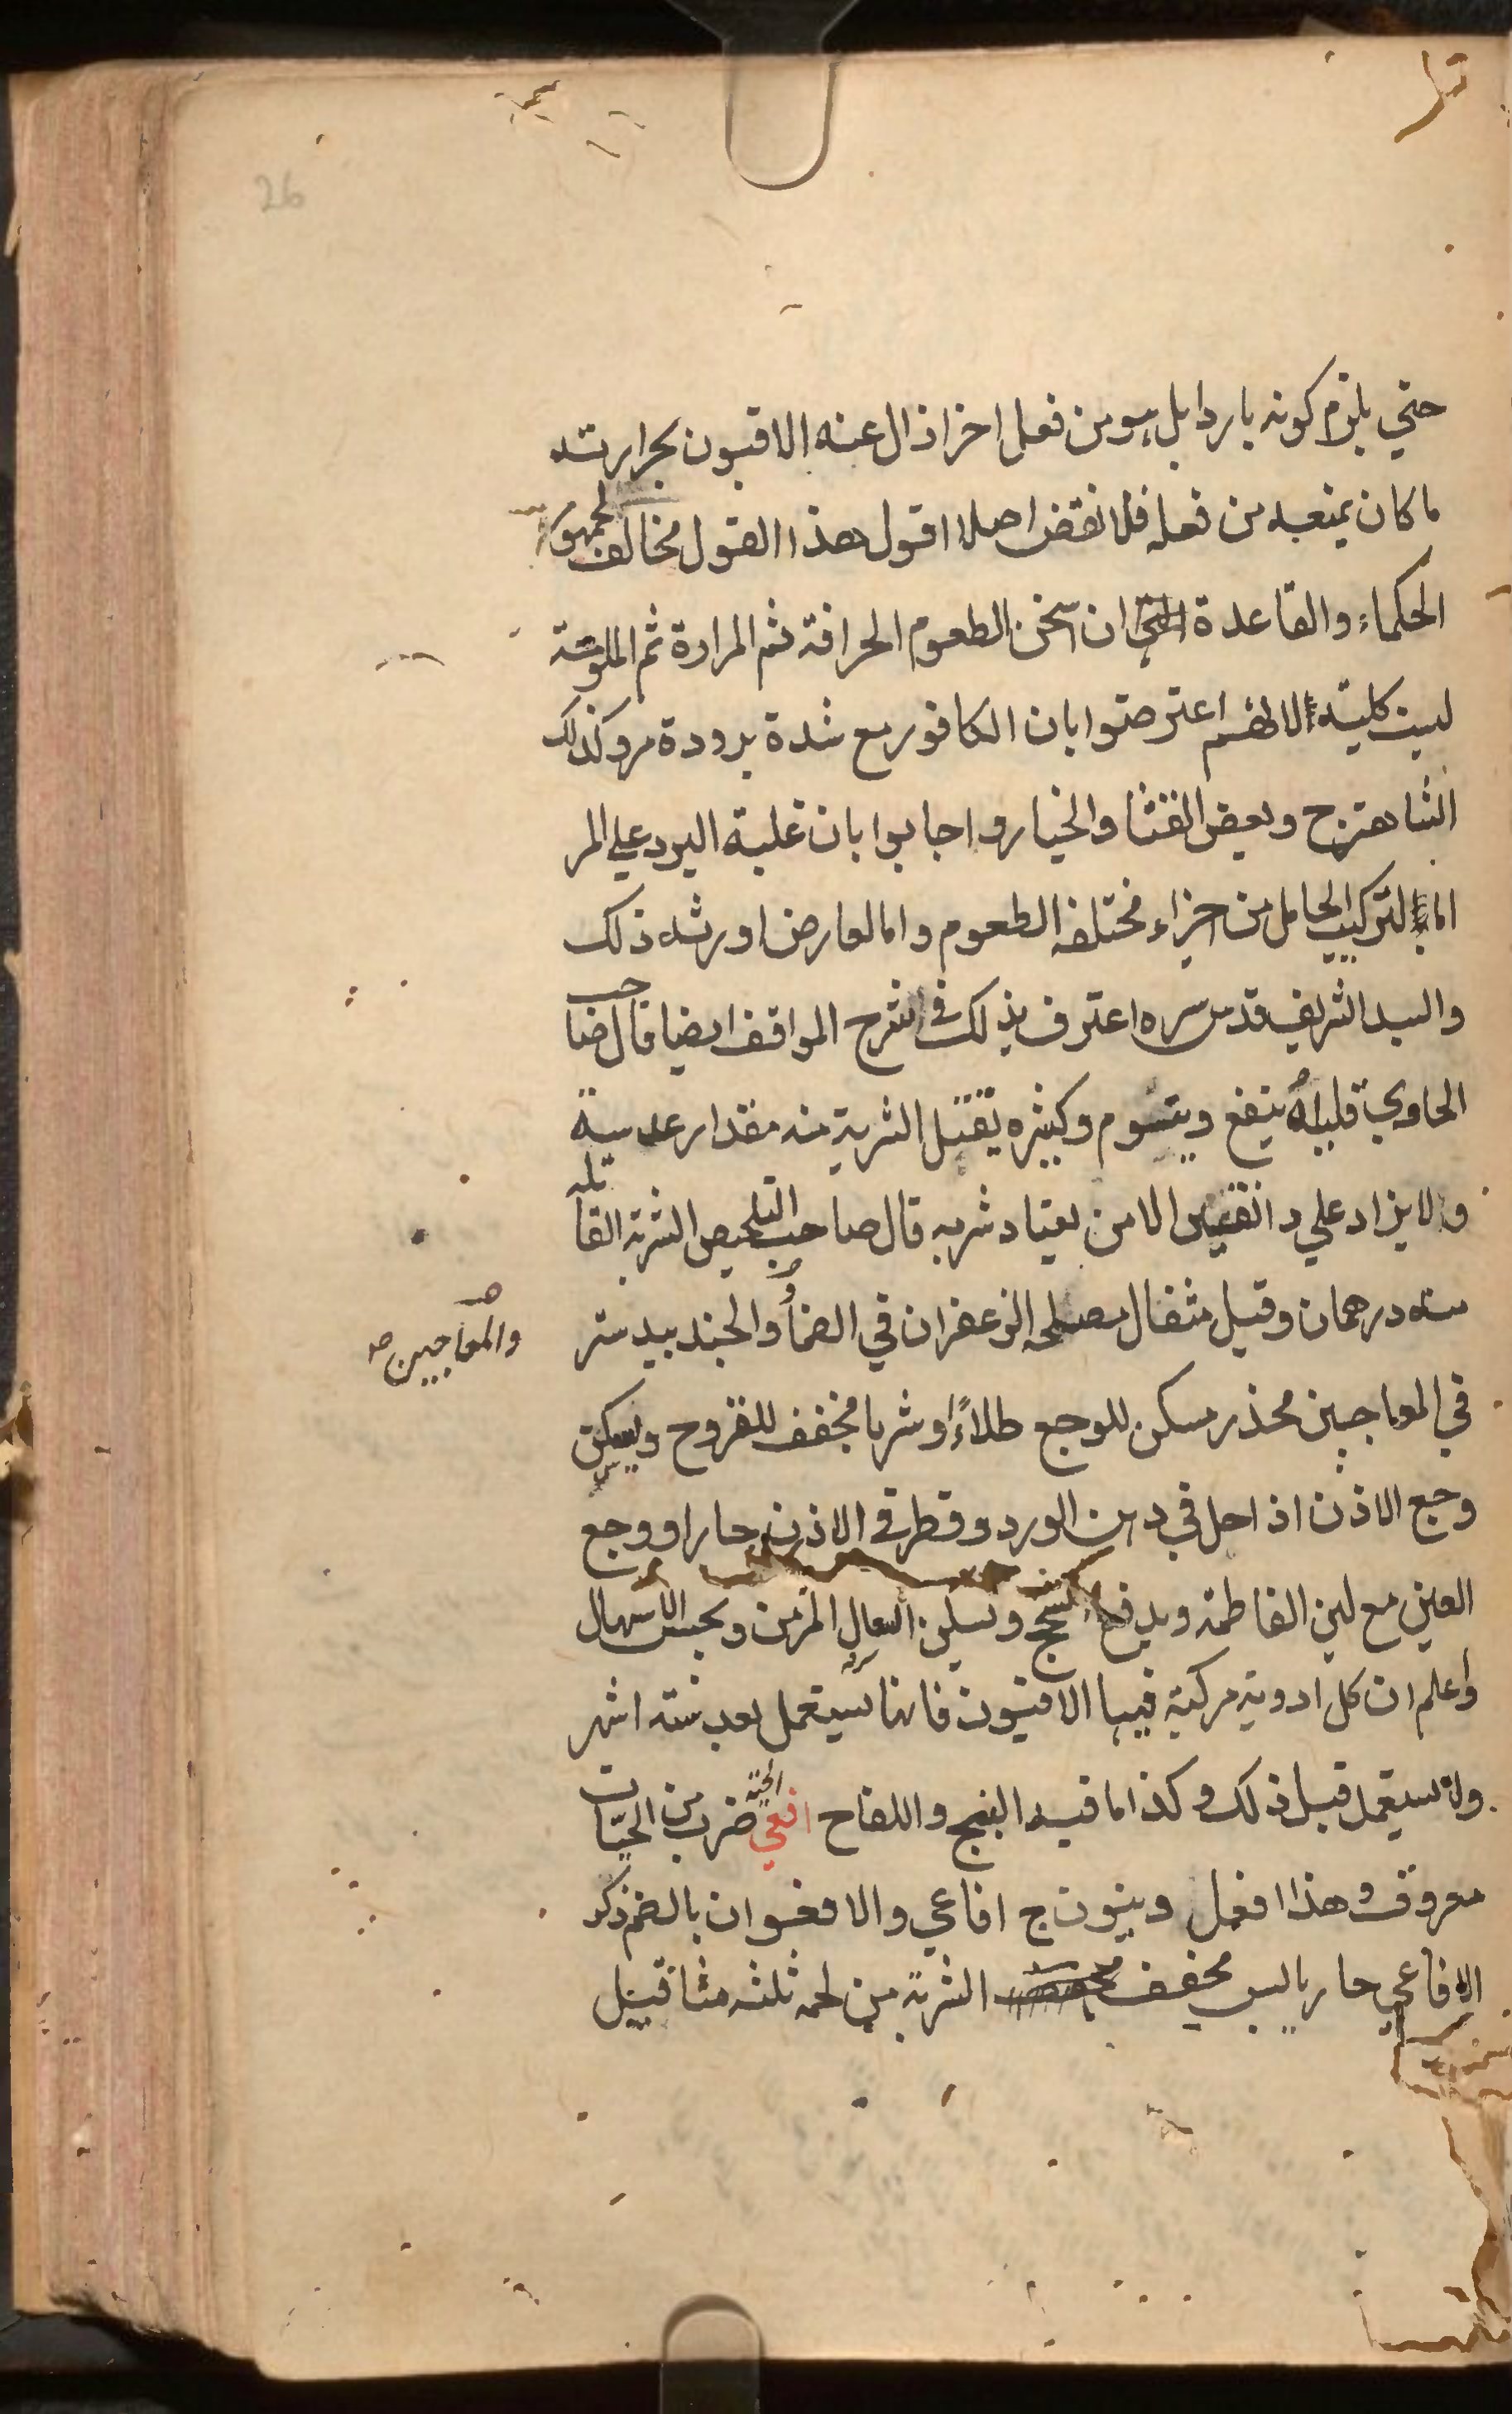 26
حتي يلزم كونه باردا بل هو من فعل اخر اذ ال عنه الافيون بحرارته
ما كان يمنعه من فعله فلا نقض اصلا اقول هذا القول مخالف لجمهور
الحكماء والقاعدة التي ان اسخن الطعوم الحرافة ثم المرارة ثم الملوحة
ليست كلية الا انهم اعترضوا بان الكافور مع شدة برودة مر وكذلك
الشاهترج وبعض القثا والخيار واجابوا بان غلبة البرد علي المر
اما لتركيب الحاصل من اجزاء مختلفة الطعوم واما لعارض اورثه ذلك
والسيد الشريف قدس سره اعترف بذلك في شرح المواقف ايضا قال صاحب
الحاوي قليله ينفع وينوم وكثيره يقتل الشربة منه مقدار عدسة
ولا يزاد علي دانقين الا من يعتاد شربه قال صاحب التلخيص الشربة القاتلة
منه درهمان وقيل مثقال مصلحه الزعفران في الضماد والجندبيدستر
والمعاجين صح
في المعاجين مخدر مسكن للوجع طلاءً او شربا مجفف للقروح ويسكن
وجع الاذن اذا حل في دهن الورد وقطر في الاذن حارا ووجع
العين مع لبن الفاطمة ويدفع السحج ويسكن السعال المزمن ويحبس الاسهال
واعلم ان كل ادوية مركبة فيها الافيون فانها تستعمل بعد ستة اشهر
ولا تستعمل قبل ذلك وكذا ما فيه البنج واللفاح افعي الحية ضرب من الحيات
معروف وهذا افعل وينون ج افاعي والافعوان بالضم ذكر
الافاعي حار يابس مجفف الشربة من لحمه ثلثه مثاقيل